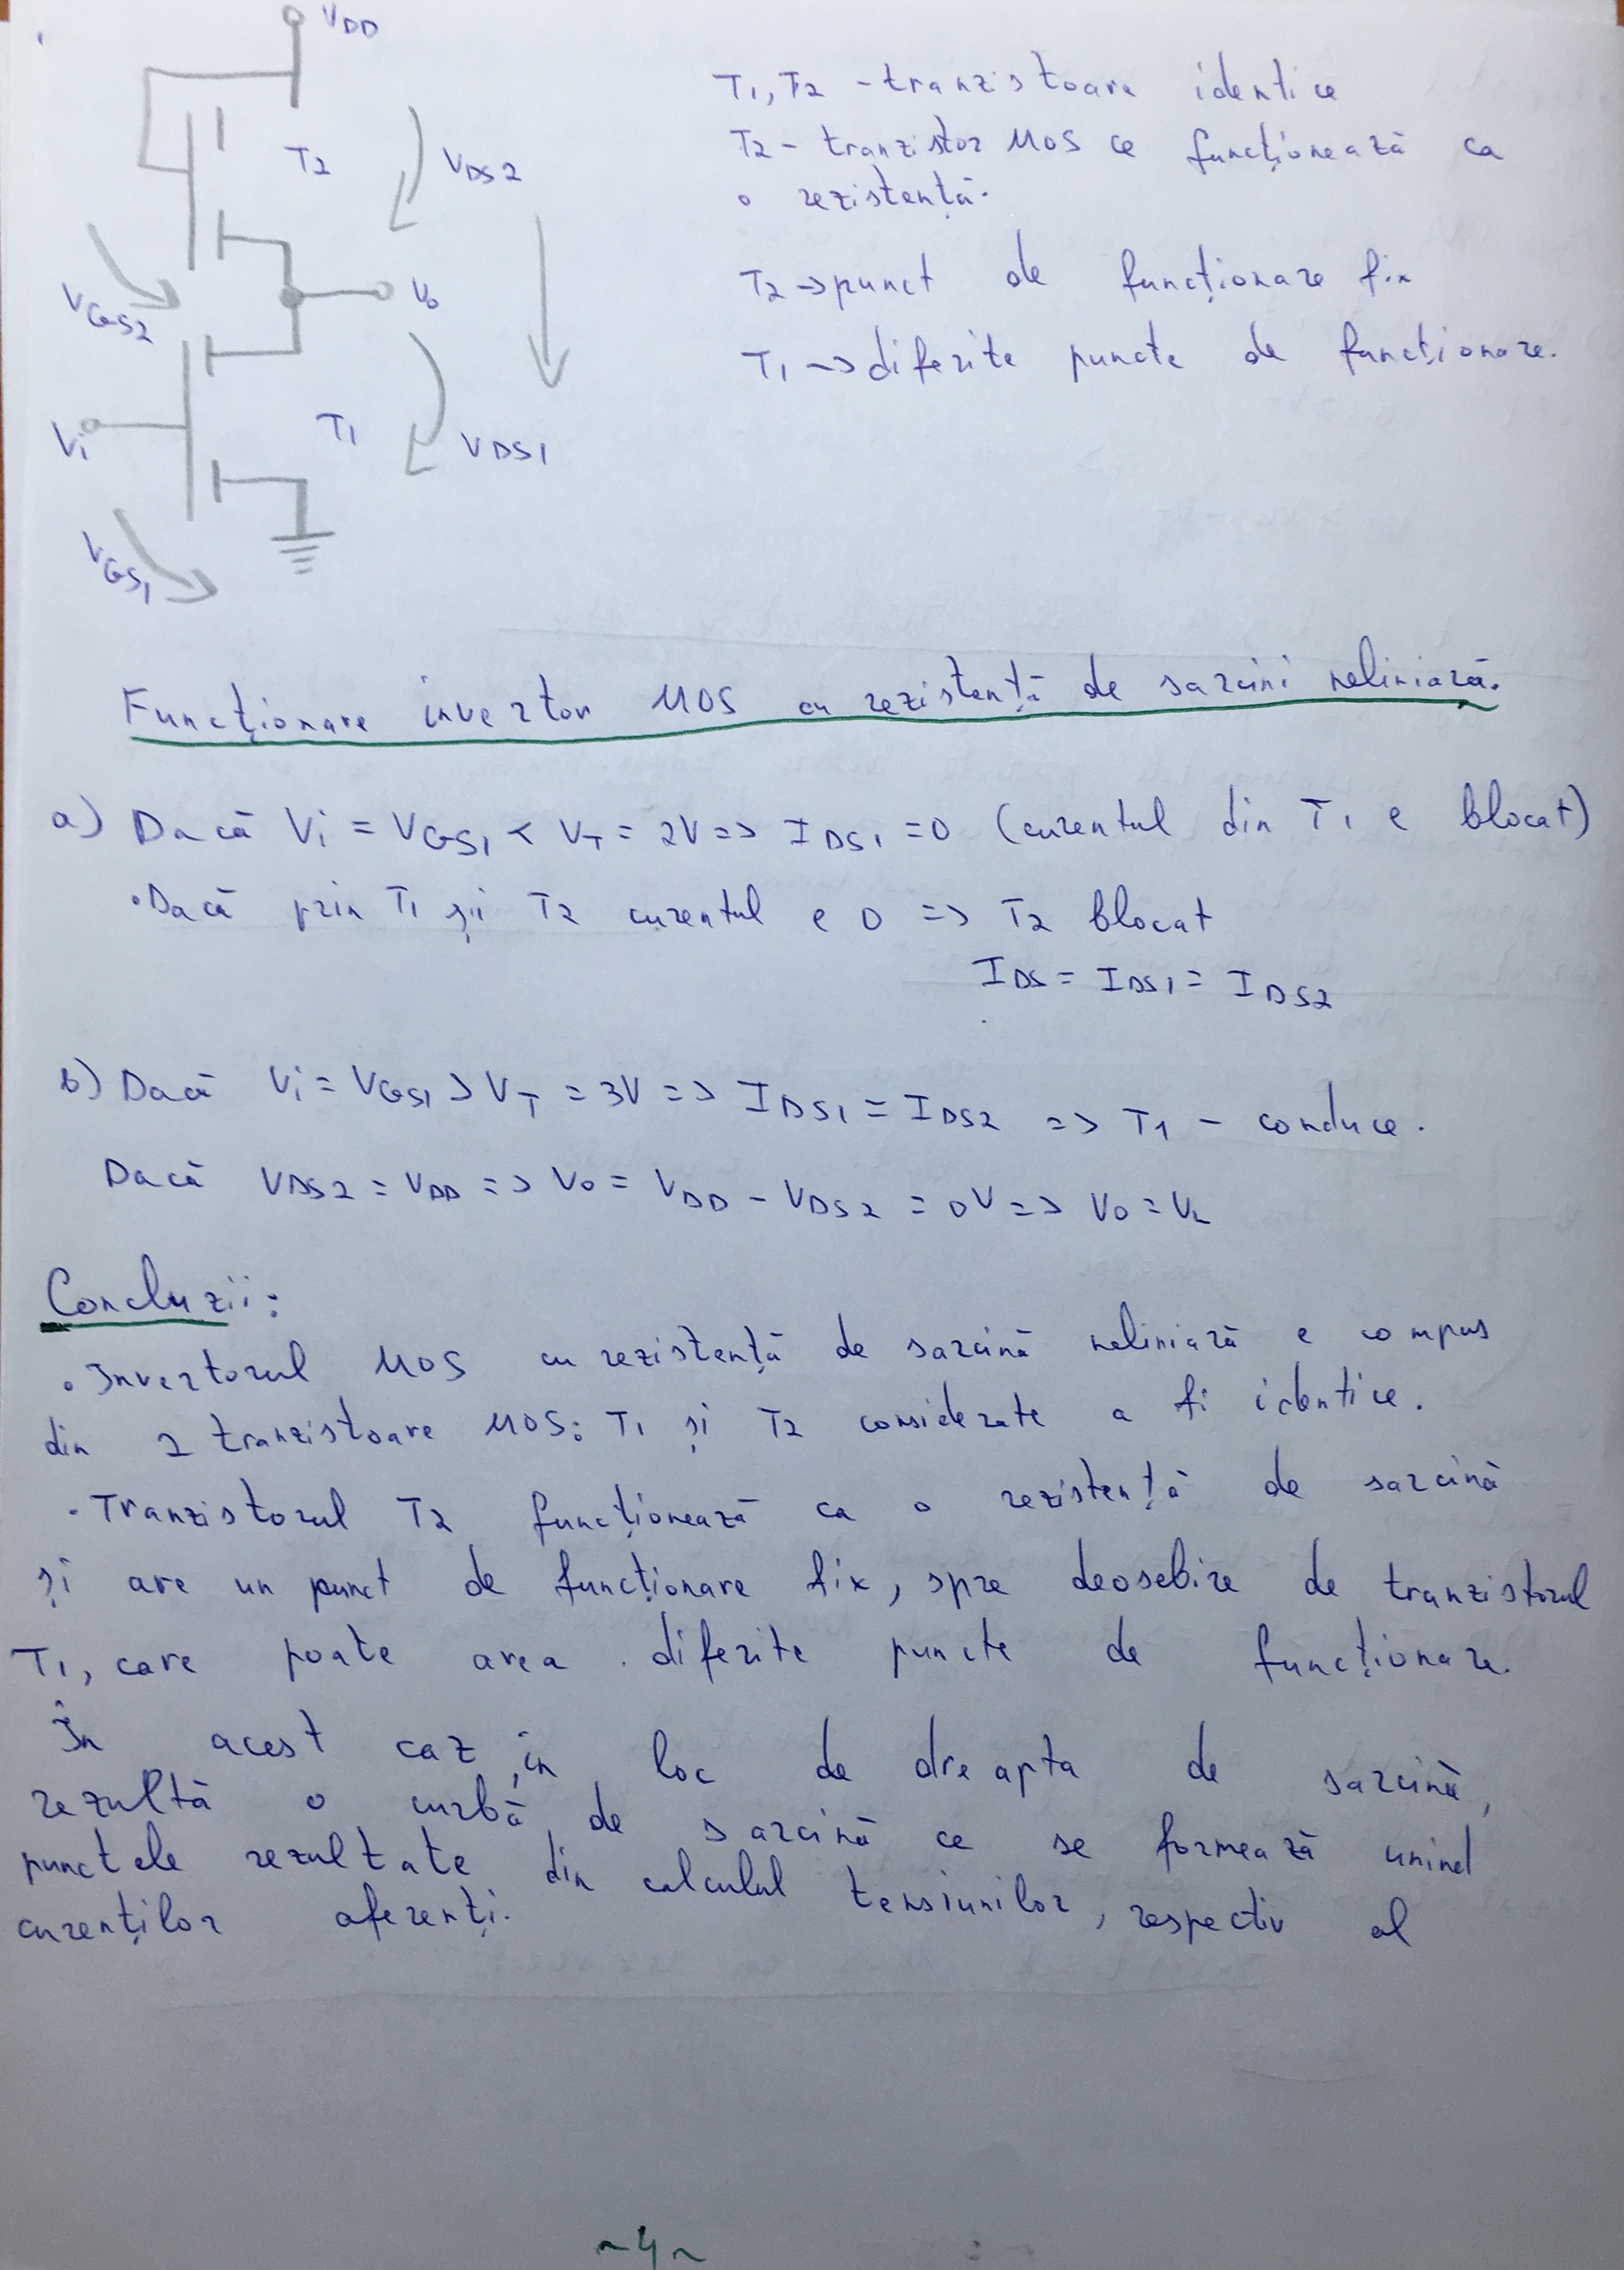 VDD
T2
VDS2
VGS2
Vo
Vi
T1
VDS1
VGS1
T1, T2 - tranzistoare identice
T2 - tranzistor MOS ce funcționează ca
o rezistență.
T2 -> punct de funcționare fix
T1 -> diferite puncte de funcționare.
Funcționare invertor MOS cu rezistență de sarcini neliniară.
a) Dacă Vi = VGS1 < VT = 2V => IDS1 = 0 (curentul din T1 e blocat)
• Dacă prin T1 și T2 curentul e 0 => T2 blocat
IDS = IDS1 = IDS2
b) Dacă Vi = VGS1 > VT = 3V => IDS1 = IDS2 => T1 - conduce.
Dacă VDS2 = VDD => Vo = VDD - VDS2 = 0V => Vo = VL
Concluzii:
• Invertorul MOS cu rezistență de sarcină neliniară e compus
din 2 tranzistoare MOS: T1 și T2 considerate a fi identice.
• Tranzistorul T2 funcționează ca o rezistență de sarcină
și are un punct de funcționare fix, spre deosebire de tranzistorul
T1, care poate avea diferite puncte de funcționare.
În acest caz, în loc de dreapta de sarcină,
rezultă o curbă de sarcină ce se formează unind
punctele rezultate din calculul tensiunilor, respectiv al
curenților aferenți.
~4~